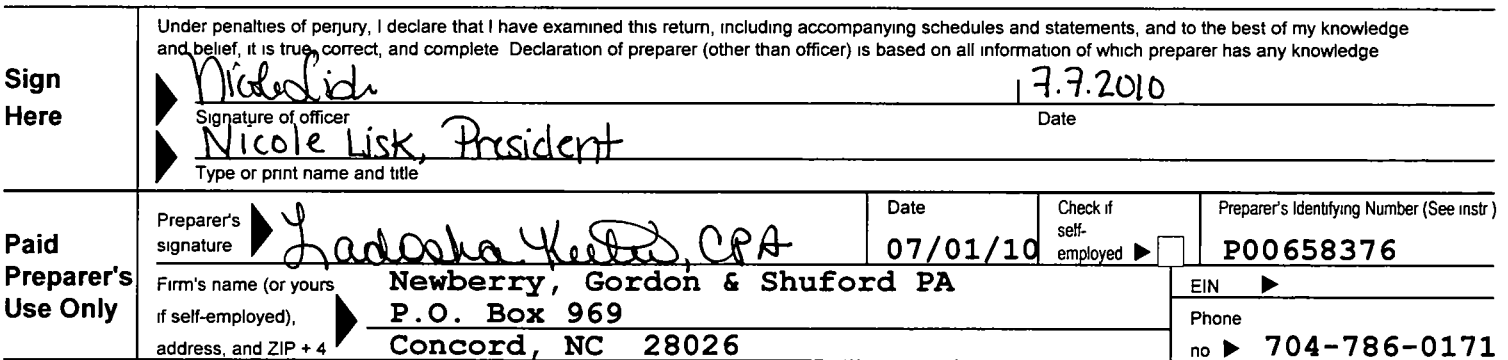 Under penalties of perjury, I declare that I have examined this return, including accompanying schedules and statements, and to the best of my knowledge
and belief, it is true, correct, and complete Declaration of preparer (other than officer) is based on all information of which preparer has any knowledge
Sign
Here
Nicole Lisk
7.7.2010
Signature of officer
Date
Nicole Lisk, President
Type or print name and title
Paid
Preparer's
Use Only
Preparer's
signature
CPA
Date
07/01/10
Check if
self-
employed
Preparer's Identifying Number (See instr)
P00658376
Firm's name (or yours
if self-employed),
address, and ZIP + 4
Newberry, Gordon & Shuford PA
P.O. Box 969
Concord, NC 28026
EIN
Phone
no 704-786-0171